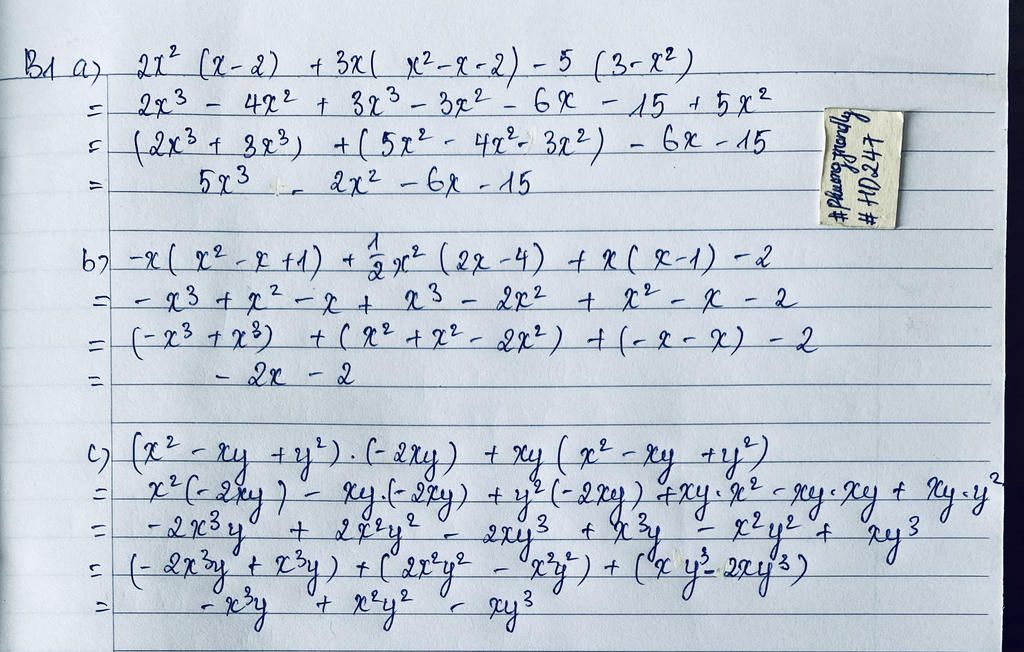 B1 a) 2x² (x-2) + 3x( x²-x-2) - 5 (3-x²)
= 2x³ - 4x² + 3x³ - 3x² - 6x - 15 + 5x²
= (2x³ + 3x³) + (5x² - 4x² - 3x²) - 6x - 15
= 5x³ - 2x² - 6x - 15
#Phuongzmanfly
#HD247
b) -x( x² - x +1) + 1/2 x² (2x-4) + x( x-1) - 2
= - x³ + x² - x + x³ - 2x² + x² - x - 2
= (-x³ + x³) + ( x² + x² - 2x²) + (-x - x) - 2
= - 2x - 2
c) (x² - xy + y²) . (-2xy) + xy ( x² - xy + y²)
= x²(-2xy) - xy.(-2xy) + y²(-2xy) + xy.x² - xy.xy + xy.y²
= -2x³y + 2x²y² - 2xy³ + x³y - x²y² + xy³
= (-2x³y + x³y) + (2x²y² - x²y²) + (xy³ - 2xy³)
= -x³y + x²y² - xy³